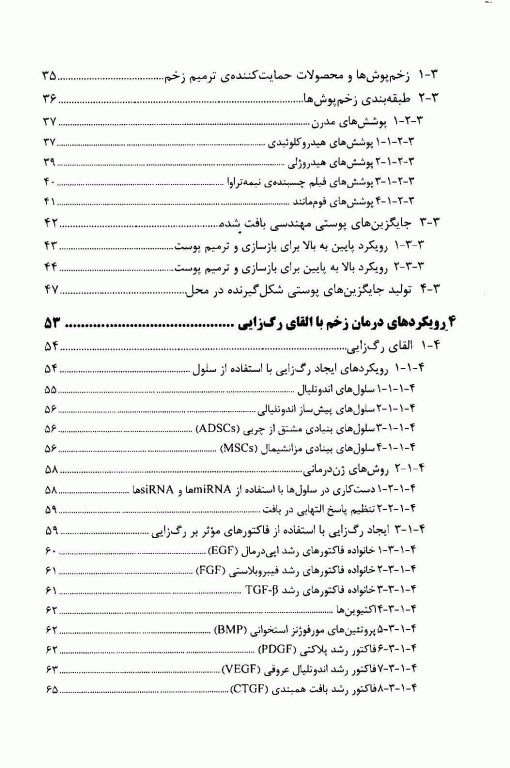 ۳-۱ زخم‌پوش‌ها و محصولات حمایت‌کننده‌ی ترمیم زخم ۳۵
۳-۲ طبقه‌بندی زخم‌پوش‌ها ۳۶
۳-۲-۱ پوشش‌های مدرن ۳۷
۳-۲-۱-۱ پوشش‌های هیدروکلوئیدی ۳۷
۳-۲-۱-۲ پوشش‌های هیدروژلی ۳۹
۳-۲-۱-۳ پوشش‌های فیلم چسبنده‌ی نیمه‌تراوا ۴۰
۳-۲-۱-۴ پوشش‌های فوم‌مانند ۴۱
۳-۳ جایگزین‌های پوستی مهندسی بافت شده ۴۲
۳-۳-۱ رویکرد پایین به بالا برای بازسازی و ترمیم پوست ۴۳
۳-۳-۲ رویکرد بالا به پایین برای بازسازی و ترمیم پوست ۴۴
۳-۴ تولید جایگزین‌های پوستی شکل‌گیرنده در محل ۴۷
۴ رویکردهای درمان زخم با القای رگ‌زایی ۵۳
۴-۱ القای رگ‌زایی ۵۴
۴-۱-۱ رویکردهای ایجاد رگ‌زایی با استفاده از سلول ۵۴
۴-۱-۱-۱ سلول‌های اندوتلیال ۵۵
۴-۱-۱-۲ سلول‌های پیش‌ساز اندوتلیالی ۵۶
۴-۱-۱-۳ سلول‌های بنیادی مشتق از چربی (ADSCs) ۵۶
۴-۱-۱-۴ سلول‌های بینادی مزانشیمال (MSCs) ۵۶
۴-۱-۲ روش‌های ژن‌درمانی ۵۸
۴-۱-۲-۱ دست‌کاری در سلول‌ها با استفاده از miRNAها و siRNAها ۵۸
۴-۱-۲-۲ تنظیم پاسخ التهابی در بافت ۵۹
۴-۱-۳ ایجاد رگ‌زایی با استفاده از فاکتورهای مؤثر بر رگ‌زایی ۵۹
۴-۱-۳-۱ خانواده فاکتورهای رشد اپی‌درمال (EGF) ۶۰
۴-۱-۳-۲ خانواده فاکتورهای رشد فیبروبلاستی (FGF) ۶۱
۴-۱-۳-۳ خانواده فاکتورهای رشد TGF-β ۶۱
۴-۱-۳-۴ اکتیوین‌ها ۶۲
۴-۱-۳-۵ پروتئین‌های مورفوژنز استخوانی (BMP) ۶۲
۴-۱-۳-۶ فاکتور رشد پلاکتی (PDGF) ۶۲
۴-۱-۳-۷ فاکتور رشد اندوتلیال عروقی (VEGF) ۶۳
۴-۱-۳-۸ فاکتور رشد بافت همبندی (CTGF) ۶۵